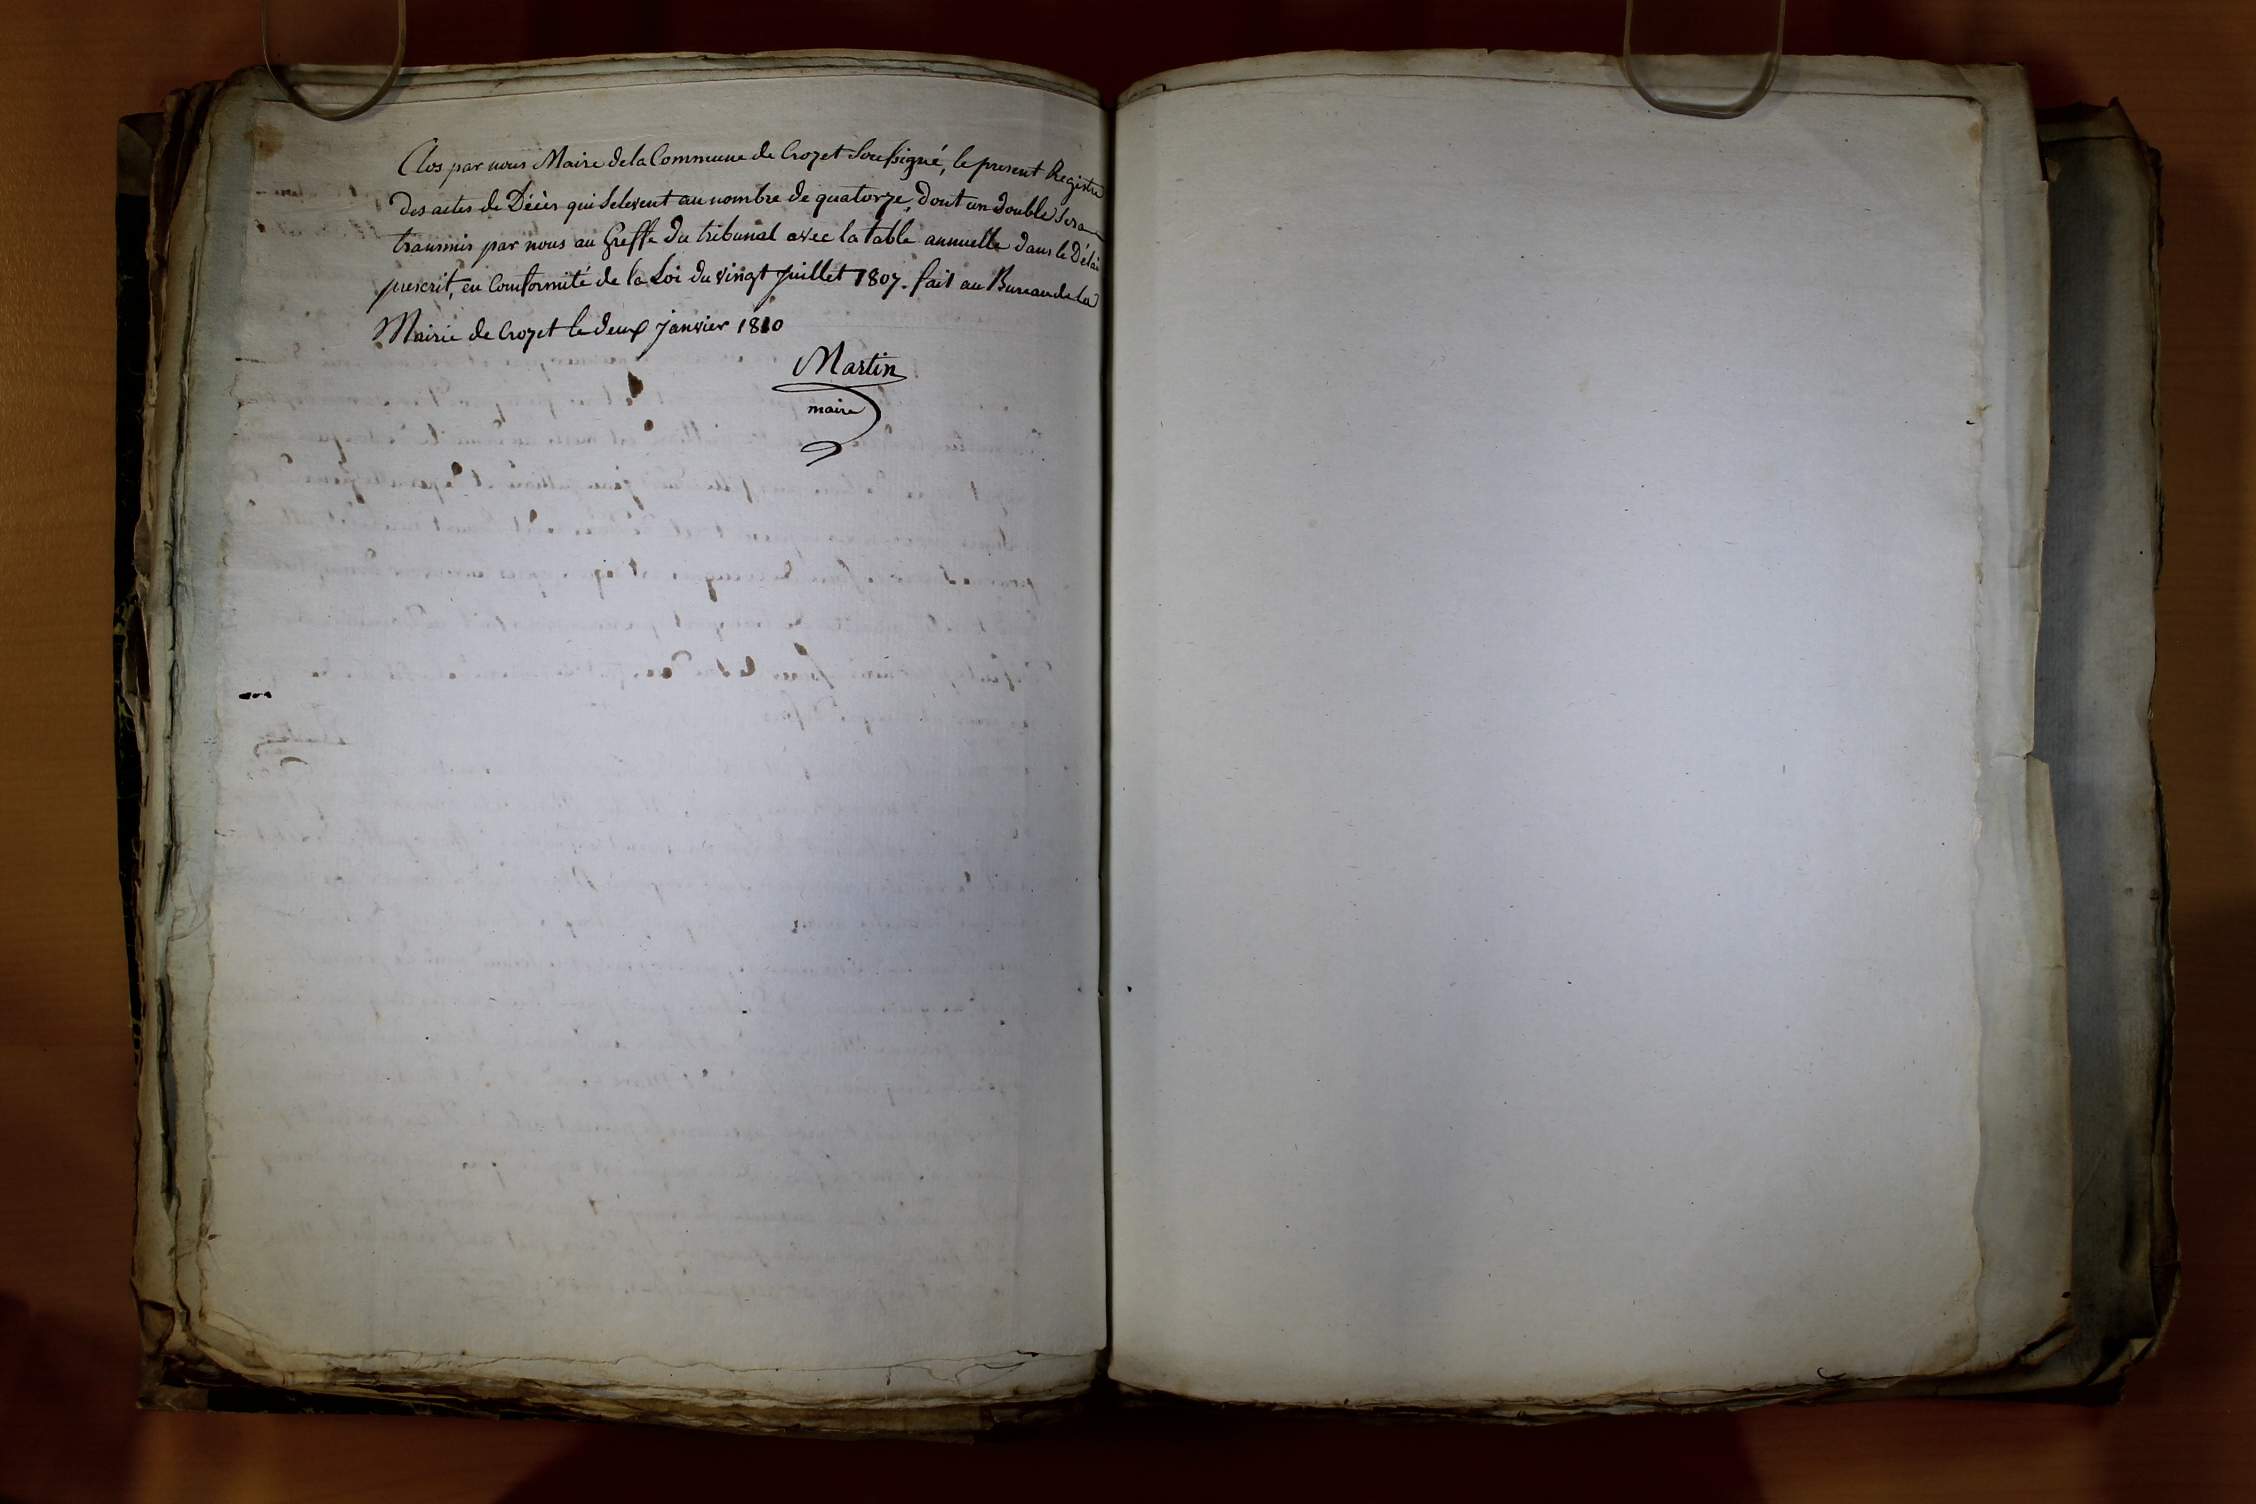 Clos par nous Maire de la Commune de Crozet Soussigné, le present Registre
des actes de Décès qui Selevent au nombre de quatorze, dont un double sera
transmis par nous au Greffe du tribunal avec la table annuelle dans le Délai
prescrit, en Conformité de la Loi du vingt Juillet 1807. fait au Bureau de la
Mairie de Crozet le deux janvier 1810
Martin
maire